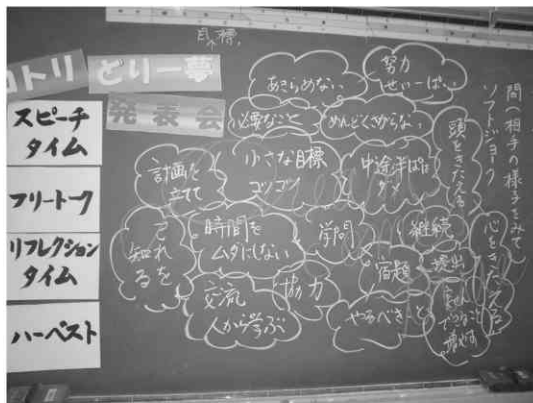 目標
コトリ どりー夢
発表会
スピーチ
タイム
フリートーク
リフレクション
タイム
ハーベスト
あきらめない
努力
せいいっぱい
必要なこと
めんどくさがらない
計画を
立てて
小さな目標
コツコツ
中途半ぱは
ダメ
頭をきたえる
それを
知る
時間を
ムダにしない
学問
継続
宿題
提出
心をきたえる
交流
人から学ぶ
協力
やるべきこと
できること
増やす
間(相手の様子をみて)
ソフトジョーク